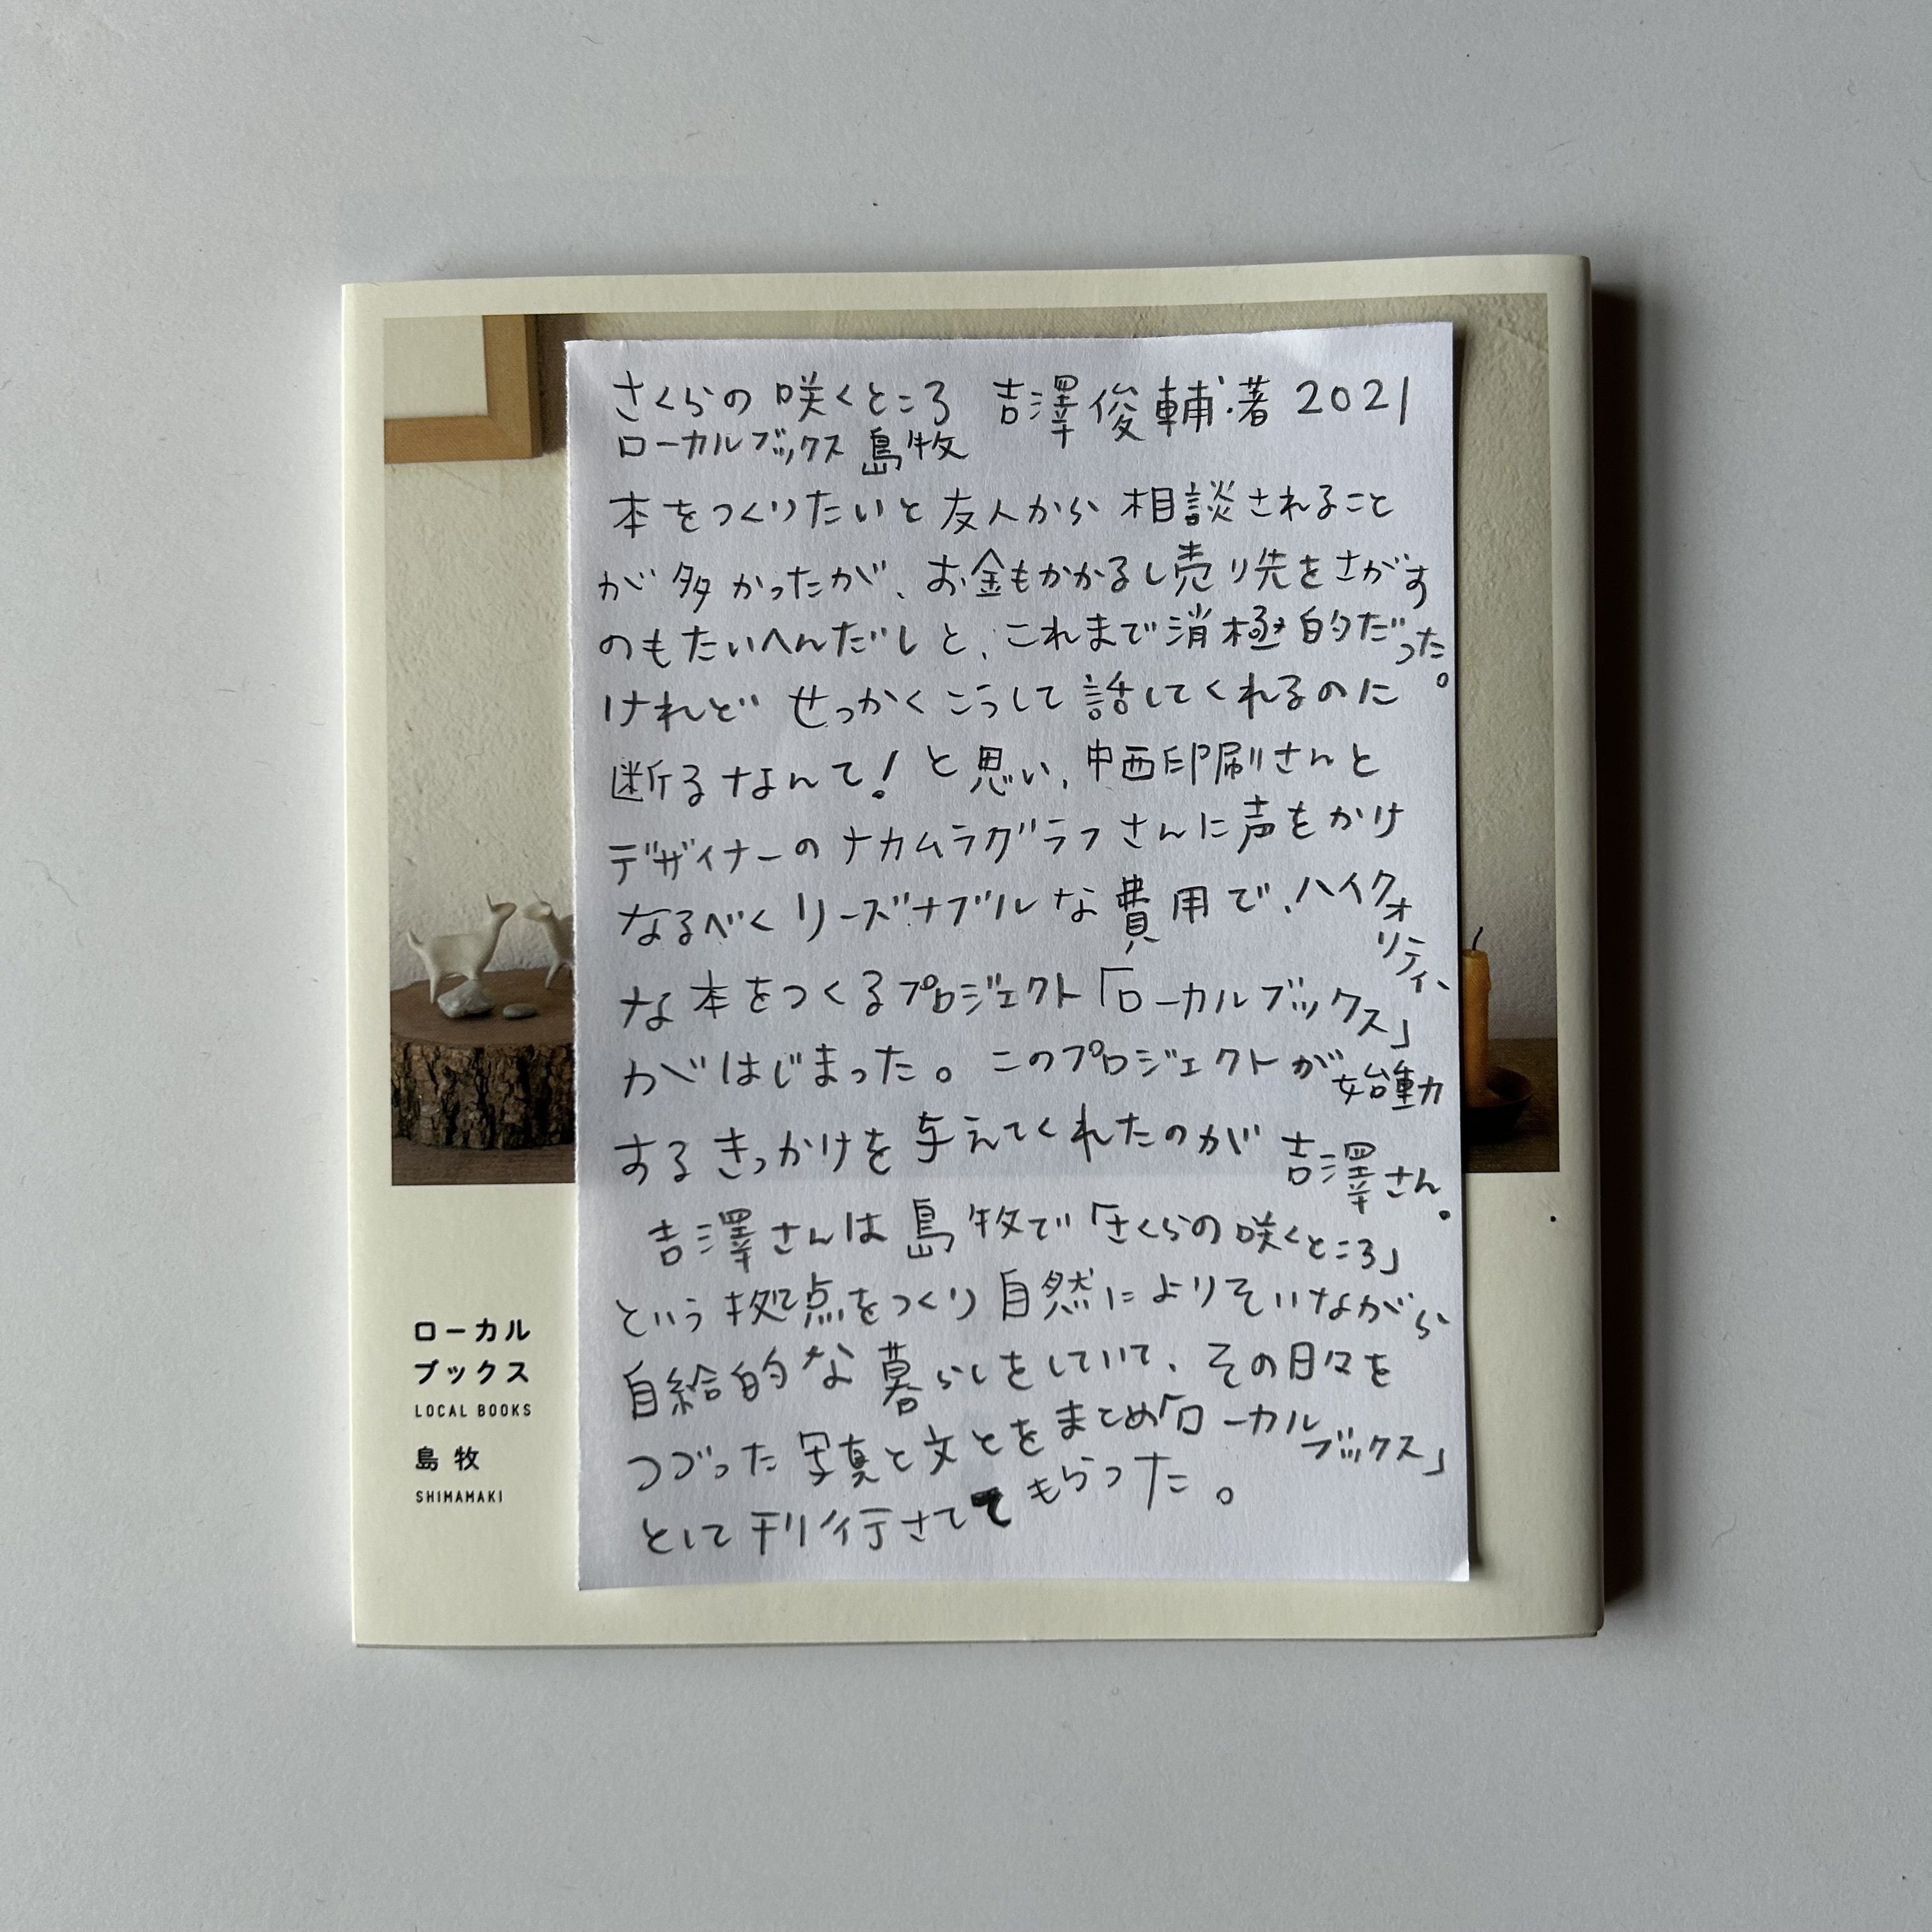 さくらの咲くところ 吉澤俊輔・著 2021
ローカルブックス 島牧
本をつくりたいと友人から相談されること
が多かったが、お金もかかるし売り先をさがす
のもたいへんだしと、これまで消極的だった。
けれどせっかくこうして話してくれるのに
断るなんて!と思い、中西印刷さんと
デザイナーのナカムラグラフさんに声をかけ
なるべくリーズナブルな費用で、ハイクォリティ、
な本をつくるプロジェクト「ローカルブックス」
がはじまった。このプロジェクトが始動
するきっかけを与えてくれたのが吉澤さん。
吉澤さんは島牧で「さくらの咲くところ」
という拠点をつくり自然によりそいながら
自給的な暮らしをしていて、その日々を
つづった写真と文とをまとめ「ローカルブックス」
として刊行させてもらった。
ローカル
ブックス
LOCAL BOOKS
島牧
SHIMAMAKI